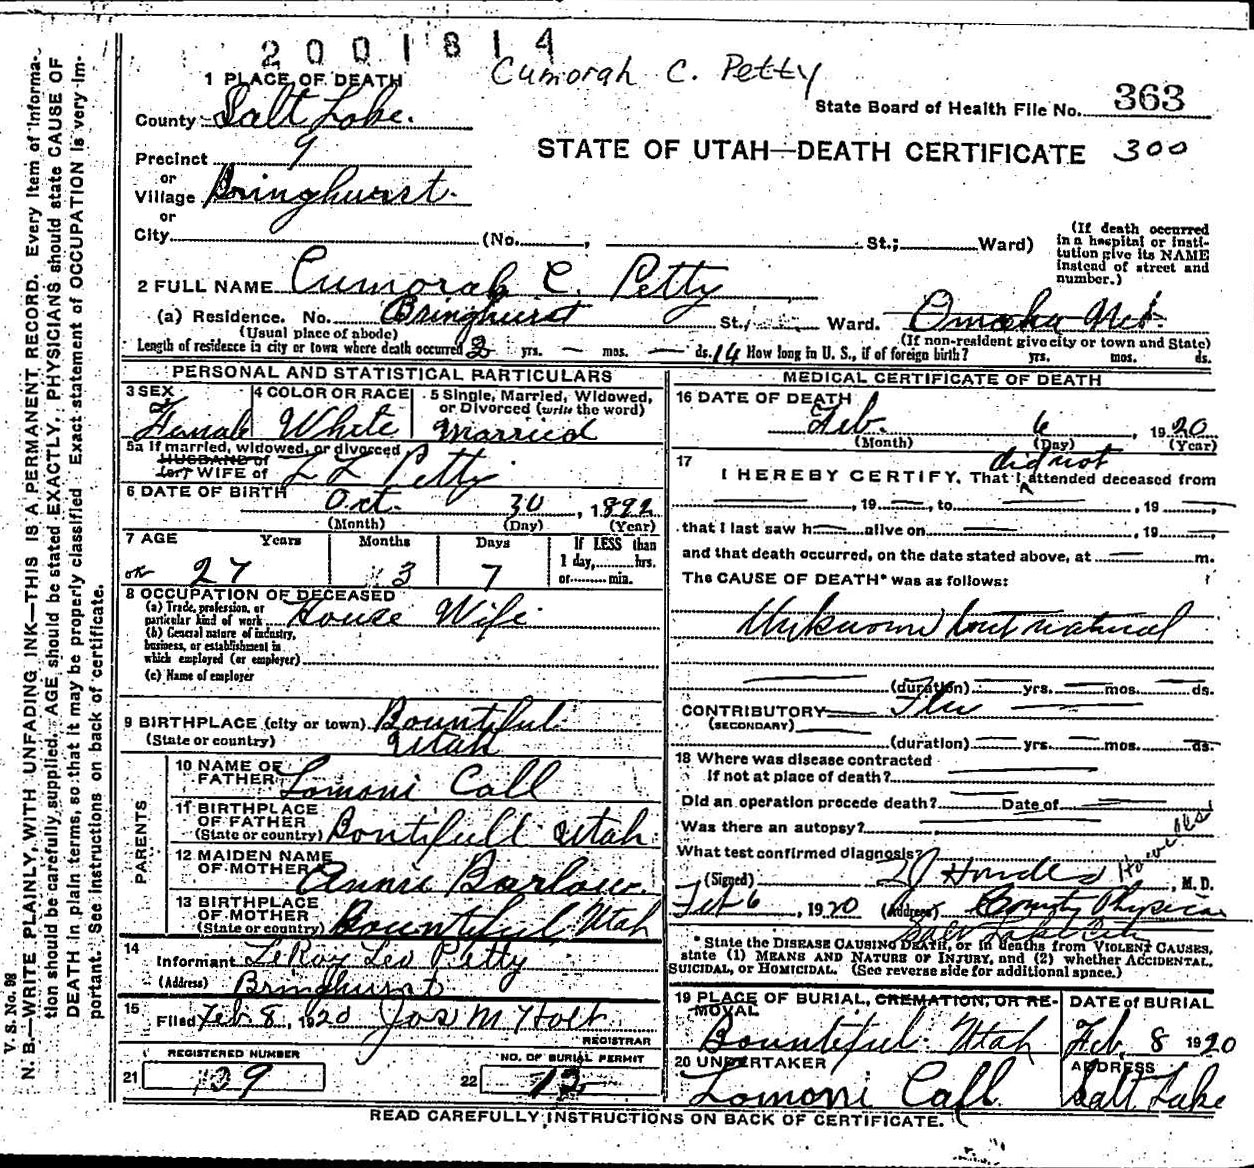 2001814
Cumorah C. Petty
1 PLACE OF DEATH
State Board of Health File No. 363
County Salt Lake.
STATE OF UTAH—DEATH CERTIFICATE 300
Precinct 9
or
Village Bringhurst.
or
City (No. , St.; Ward)
(If death occurred in a hospital or institution give its NAME instead of street and number.)
2 FULL NAME Cumorah C. Petty
(a) Residence. No. Bringhurst St., Ward. Omaha Neb.
(Usual place of abode) (If non-resident give city or town and State)
Length of residence in city or town where death occurred yrs. — mos. — ds. 14 How long in U. S., if of foreign birth? yrs. mos. ds.
PERSONAL AND STATISTICAL PARTICULARS
3 SEX Female
4 COLOR OR RACE White
5 Single, Married, Widowed, or Divorced (write the word) Married
5a If married, widowed, or divorced
HUSBAND of
(or) WIFE of L L Petty
6 DATE OF BIRTH Oct. 30, 1892
(Month) (Day) (Year)
7 AGE Years Months Days If LESS than
1 day, hrs.
or min.
27 3 7
8 OCCUPATION OF DECEASED
(a) Trade, profession, or
particular kind of work House Wife
(b) General nature of industry,
business, or establishment in
which employed (or employer)
(c) Name of employer
9 BIRTHPLACE (city or town) Bountiful
(State or country) Utah
PARENTS
10 NAME OF
FATHER Lomoni Call
11 BIRTHPLACE
OF FATHER
(State or country) Bontifull Utah
12 MAIDEN NAME
OF MOTHER Annie Barlow
13 BIRTHPLACE
OF MOTHER
(State or country) Bountiful Utah
14
Informant LeRoy Leo Petty
(Address) Bringhurst
15
Filed Feb 8, 1920 Jos M Holt
REGISTRAR
REGISTERED NUMBER NO. OF BURIAL PERMIT
21 139 22 12
MEDICAL CERTIFICATE OF DEATH
16 DATE OF DEATH
Feb. 6, 1920
(Month) (Day) (Year)
17 did not
I HEREBY CERTIFY, That I attended deceased from
—, 19 —, to —, 19 —,
that I last saw h— alive on —, 19 —,
and that death occurred, on the date stated above, at — m.
The CAUSE OF DEATH* was as follows:
Unknown but natural
(duration) — yrs. — mos. — ds.
CONTRIBUTORY Flu
(SECONDARY)
(duration) — yrs. — mos. — ds.
18 Where was disease contracted
if not at place of death?
Did an operation precede death? Date of
Was there an autopsy?
What test confirmed diagnosis?
(Signed) , M. D.
Feb 6, 1920 (Address) County Physician
Salt Lake City
* State the DISEASE CAUSING DEATH, or in deaths from VIOLENT CAUSES,
state (1) MEANS AND NATURE OF INJURY, and (2) whether ACCIDENTAL,
SUICIDAL, or HOMICIDAL. (See reverse side for additional space.)
19 PLACE OF BURIAL, CREMATION, OR RE-
MOVAL
Bountiful Utah
DATE of BURIAL
Feb. 8 1920
20 UNDERTAKER
Lomoni Call
ADDRESS
Salt Lake
READ CAREFULLY INSTRUCTIONS ON BACK OF CERTIFICATE.
V. S. No. 98
N. B.—WRITE PLAINLY, WITH UNFADING INK—THIS IS A PERMANENT RECORD. Every item of informa-
tion should be carefully supplied. AGE should be stated EXACTLY. PHYSICIANS should state CAUSE OF
DEATH in plain terms, so that it may be properly classified. Exact statement of OCCUPATION is very im-
portant. See instructions on back of certificate.